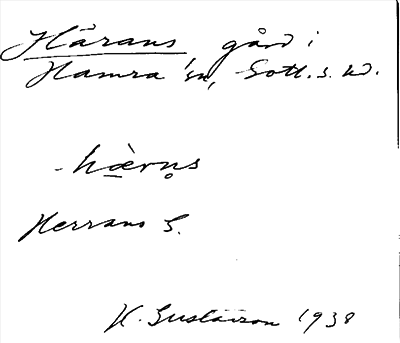 Härans, gård i
Hamra sn, Gotl. s. hd.
hà̱rn̥s
Herrans S.
H. Gustavson 1938